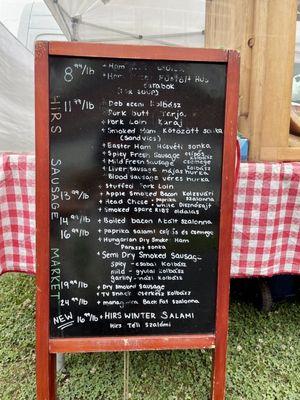 HIRS SAUSAGE MARKET
8.99/lb + Ham
+ Ham
(for soup)
11.99/lb + Debreceni Kolbász
+ Pork butt Tarja
+ Pork Loin Karaj
+ Smoked Ham Kötözött sonka
+ Easter Ham Húsvéti sonka
+ Spicy Fresh Sausage kolbász
+ Mild Fresh Sausage csemege kolbász
+ Liver sausage májas hurka
+ Blood sausage véres hurka
+ Stuffed Pork Loin
13.99/lb + Apple Smoked Bacon Kolozsvári
+ Head Cheese white Disznósajt
+ Smoked spare Ribs oldalas
14.99/lb + Boiled bacon Abált szalonna
16.99/lb + Paprika salami csípős és csemege
+ Hungarian Dry Smoked Ham
Paraszt sonka
+ Semi Dry Smoked Sausage
spicy - csabai kolbász
mild - gyulai kolbász
garlicy - házi kolbász
19.99/lb + Dry Smoked Sausage
24.99/lb + TV snack cserkész kolbász
+ mangalica Back Fat szalonna
NEW 16.99/lb + HIRS WINTER SALAMI
Hirs Téli Szalámi